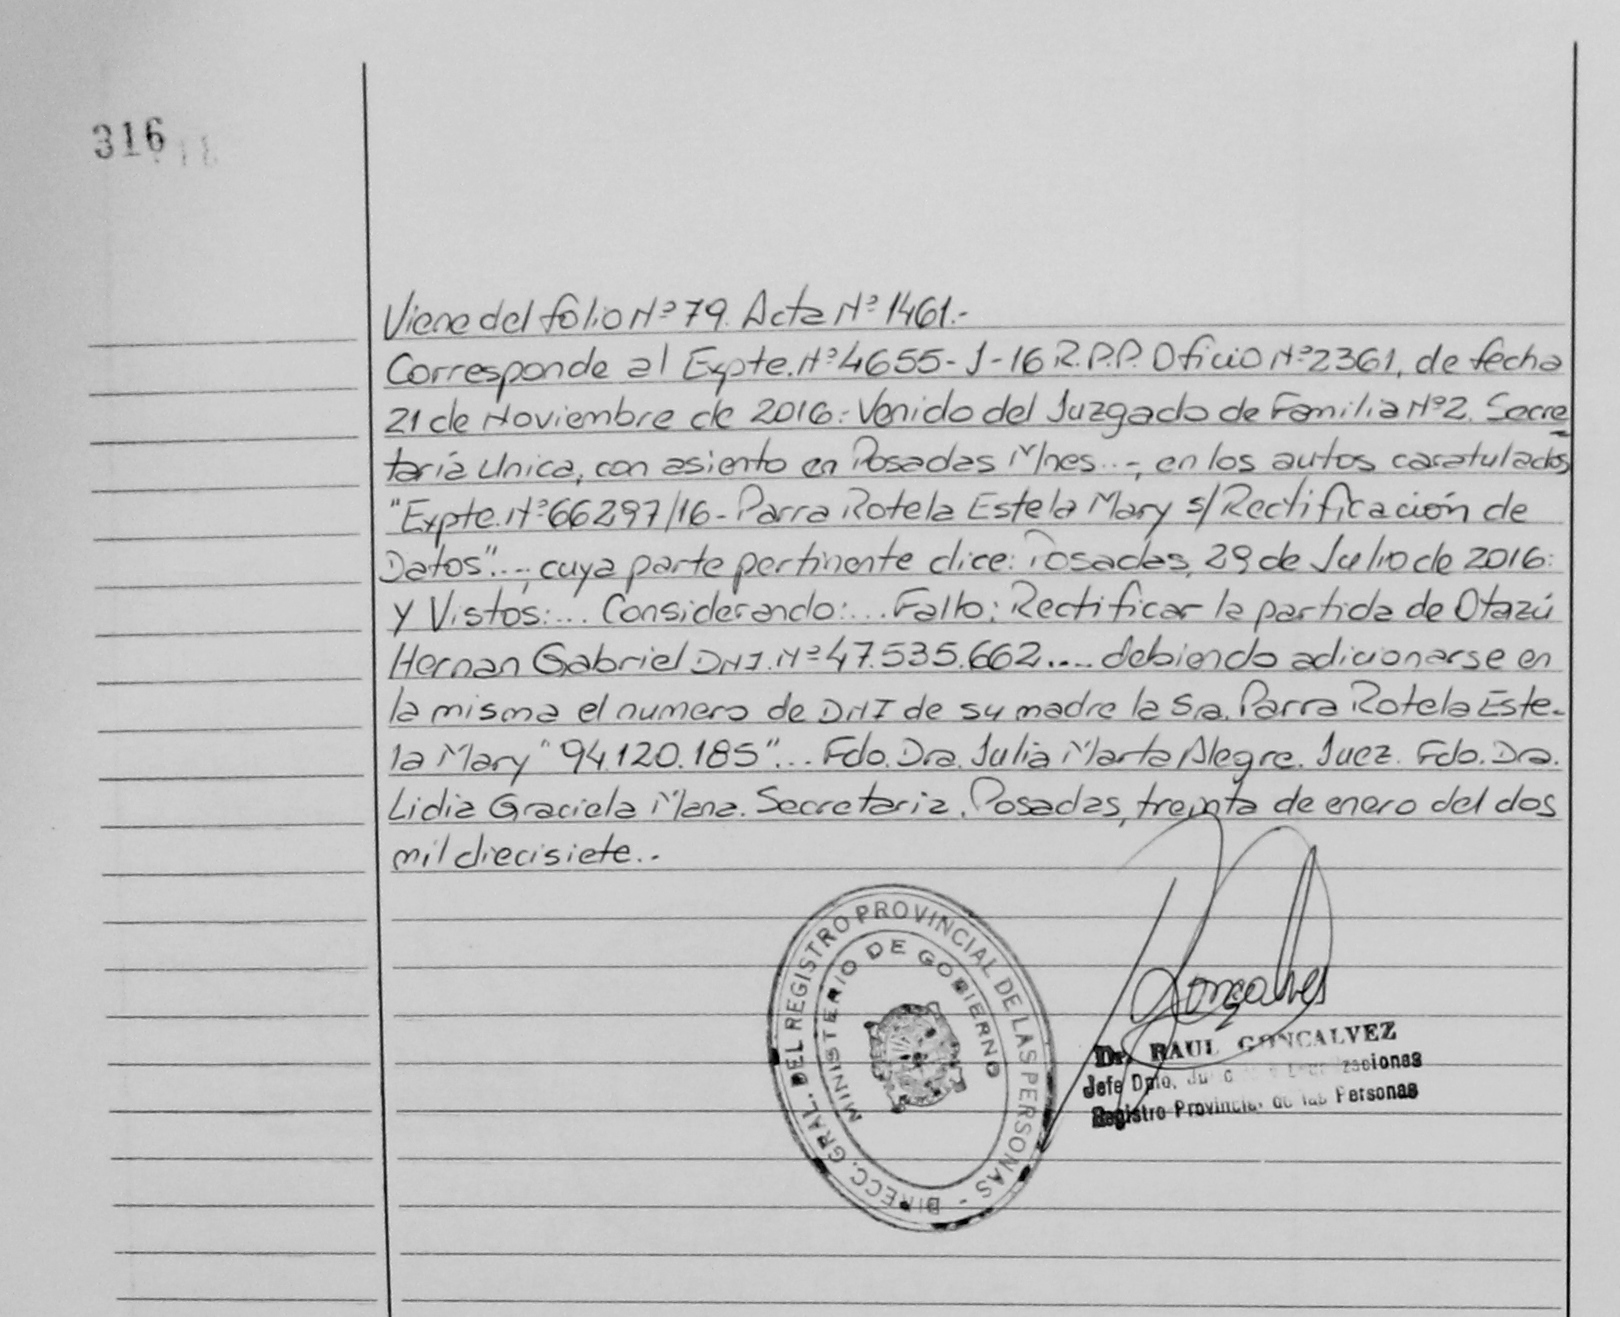 316
Viene del folio Nº 79. Acta Nº 1461.-
Corresponde al Expte. Nº 4655-J-16 R.P.P. Oficio Nº 2361, de fecha
21 de Noviembre de 2016: Venido del Juzgado de Familia Nº 2. Secre-
taría Unica, con asiento en Posadas Mnes...-, en los autos caratulados
"Expte. Nº 66297/16 - Parra Rotela Estela Mary s/ Rectificación de
Datos"...-, cuya parte pertinente dice: Posadas, 29 de Julio de 2016:
Y Vistos:... Considerando:... Fallo: Rectificar la partida de Otazú
Hernan Gabriel DNI. Nº 47.535.662.... debiendo adicionarse en
la misma el numero de DNI de su madre la Sra. Parra Rotela Este-
la Mary "94.120.185"... Fdo. Dra. Julia Marta Alegre. Juez. Fdo. Dra.
Lidia Graciela Mana. Secretaria. Posadas, treinta de enero del dos
mil diecisiete..-
DIRECC. GRAL. DEL REGISTRO PROVINCIAL DE LAS PERSONAS -
MINISTERIO DE GOBIERNO
Goncalves
Dr. RAUL GONCALVEZ
Jefe Dpto.
Registro Provincial de las Personas